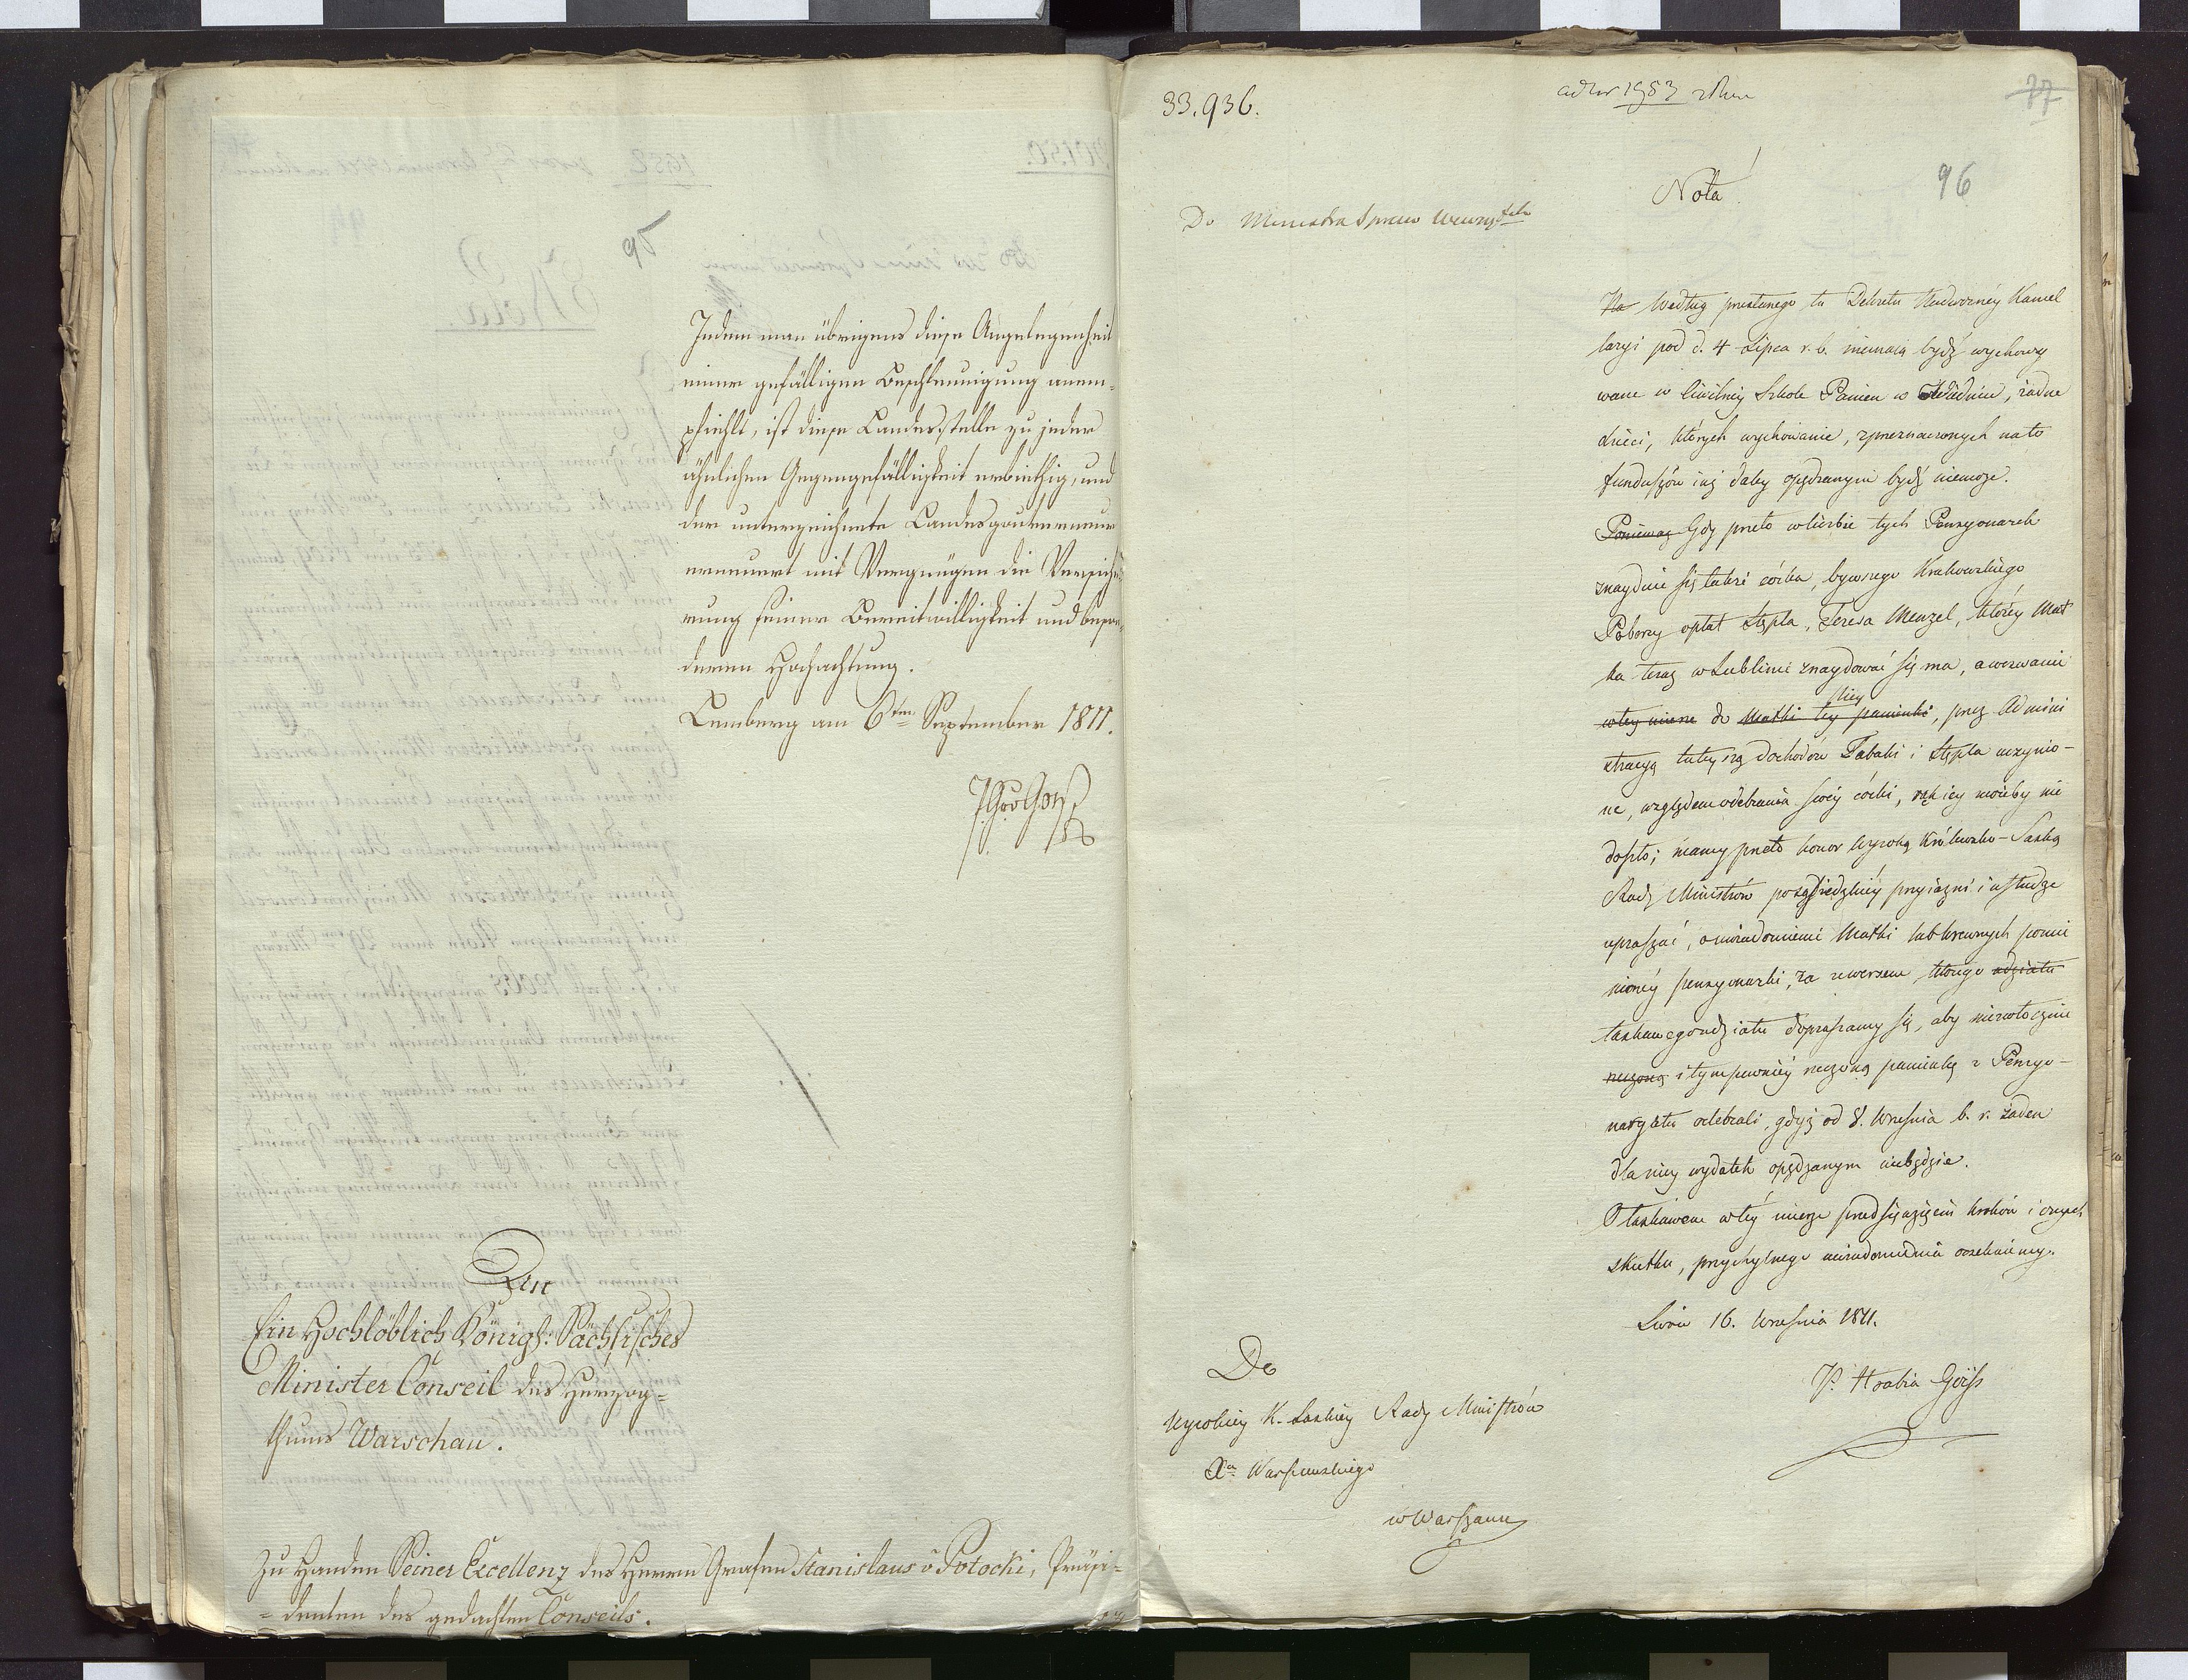 95
Indem man übrigens diese Angelegenheit
einer gefälligen Beschleunigung anem-
pfiehlt, ist diese Landesstelle zu jeder
ähnlichen Gegengefälligkeit erbiethig, und
der unterzeichnete Landesgouverneur
erneuert mit Vergnügen die Versiche
rung seiner Bereitwilligkeit und beson-
deren Hochachtung.
Lemberg am 6ten September 1811.
An
Ein Hochlöblich Königl: Sächsisches
Minister Conseil des Herzog-
thums Warschau.
Zu Handen Seiner Excellenz des Herrn Grafen Stanislaus v Potocki, Präsi-
-denten des gedachten Conseils.
33.936.
1953
77
96
Nota
Do Ministra Spraw Wewnętrzn
Na Według przesłanego tu Dekretu Nadwornéy Kancel
laryi pod d. 4 Lipca r. b. niemaią bydź wychowy
wane w Cywilnéy Szkole Panien w Wiedniu, żadne
dzieci, których wychowanie, z przeznaczonych na to
funduszów iuż daléy opędzanym bydź niemoże.
Ponieważ Gdy przeto w liczbie tych Pensyonarek
znayduie się także córka, bywszego Krakowskiego
Poborcy opłat Stępla, Teresa Menzel, któréy Mat
ka teraz w Lublinie znaydować się ma, a wezwanie
w téy mierze do Matki téy panienki niéy, przez Admini
stracyą tuteyszą dochodów Tabaki i Stępla uczynio-
ne, względem odebrania swéy córki, rąk iéy możeby nie
doszło; mamy przeto honor Wysoką Królewsko-Saską
Radę Ministrów po sąsiedzkiéy przyiaźni i usłudze
upraszać, o uwiadomienie Matki lub krewnych pomie
nionéy pensyonarki, za rewersem, którego udziału
łaskawego udziału dopraszamy się, aby niezwłocznie
rzeczoną i tym pewniéy rzeczoną panienkę z Pensyo-
naryatu odebrali, gdyż od 8. Września b. r. żaden
dla niéy wydatek opędzanym niebędzie.
O łaskawem w téy mierze przedsięwzięciu kroków i onych
skutku, przychylnego uwiadomienia oczekuiemy.
Lwów 16. Września 1811.
P. Hrabia Göiss
Do
Wysokiéy K. Saskiéy Rady Ministrów
Xa Warszawskiego
w Warszawie